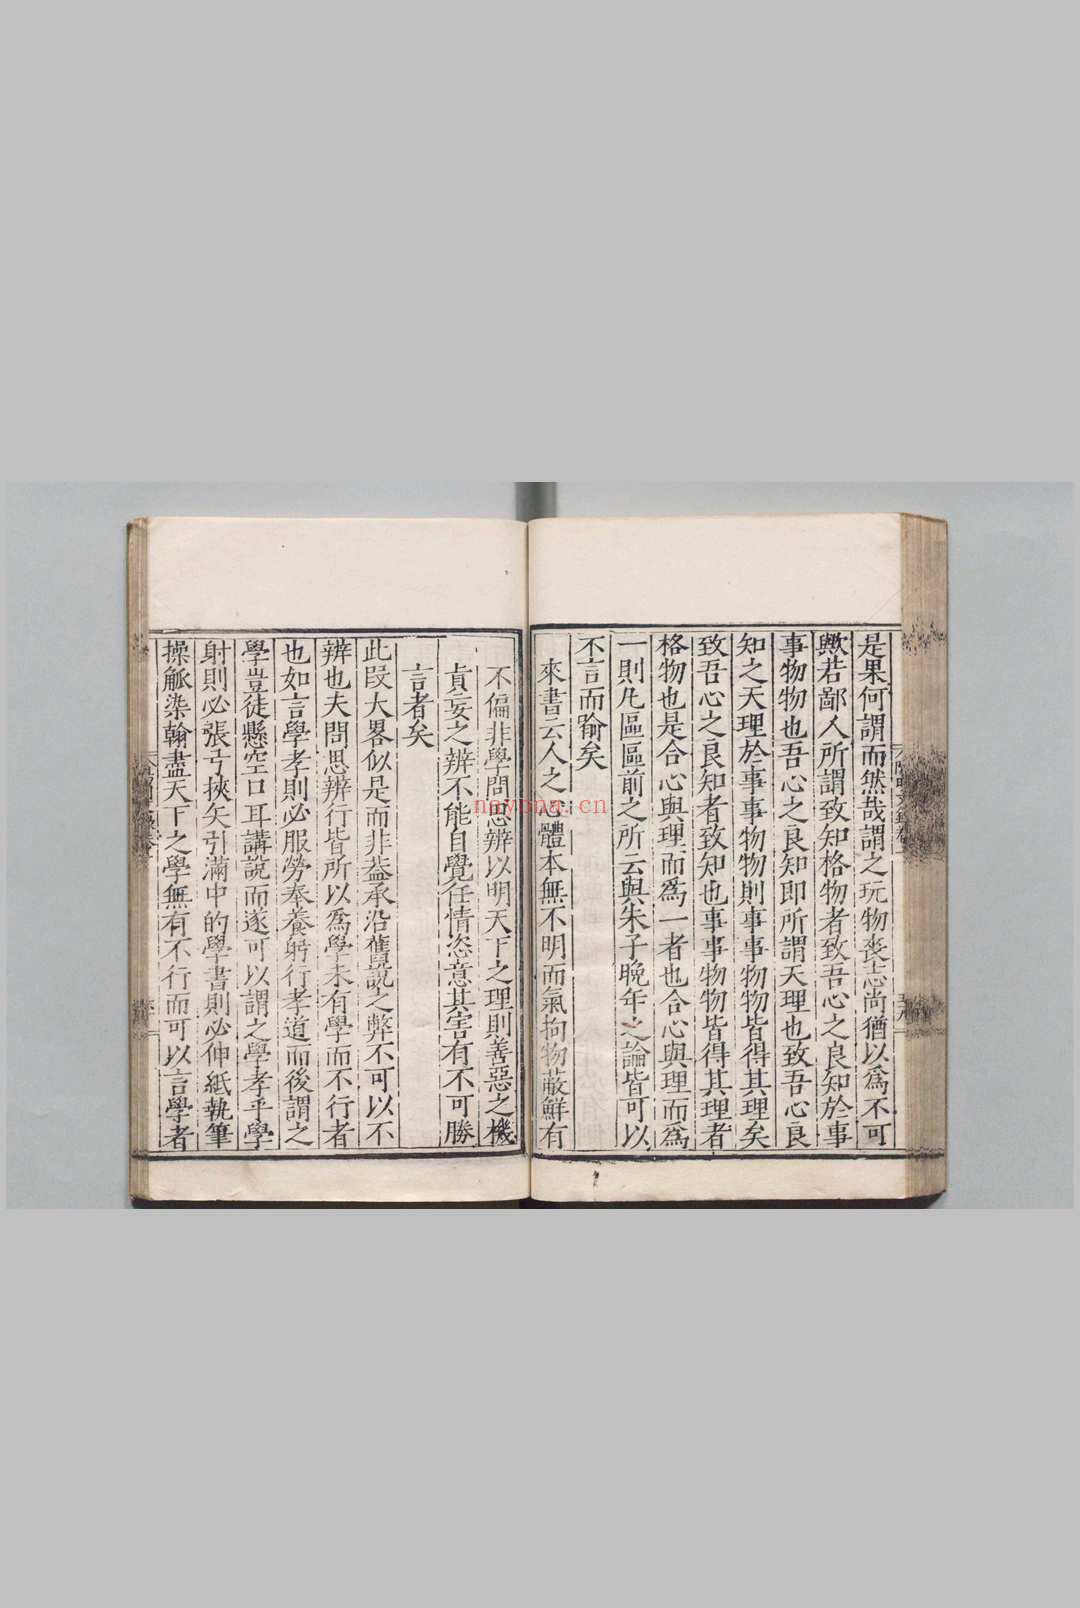 是果何謂而然哉謂之玩物喪志尚猶以爲不可
歟若鄙人所謂致知格物者致吾心之良知於事
事物物也吾心之良知即所謂天理也致吾心良
知之天理於事事物物則事事物物皆得其理矣
致吾心之良知者致知也事事物物皆得其理者
格物也是合心與理而爲一者也合心與理而爲
一則凡區區前之所云與朱子晚年之論皆可以
不言而喻矣
來書云人之心體本無不明而氣拘物蔽鮮有
不偏非學問思辨以明天下之理則善惡之機
真妄之辨不能自覺任情恣意其害有不可勝
言者矣
此段大畧似是而非蓋承沿舊說之弊不可以不
辨也夫問思辨行皆所以爲學未有學而不行者
也如言學孝則必服勞奉養躬行孝道而後謂之
學豈徒懸空口耳講說而遂可以謂之學孝乎學
射則必張弓挾矢引滿中的學書則必伸紙執筆
操觚染翰盡天下之學無有不行而可以言學者
nayona.cn